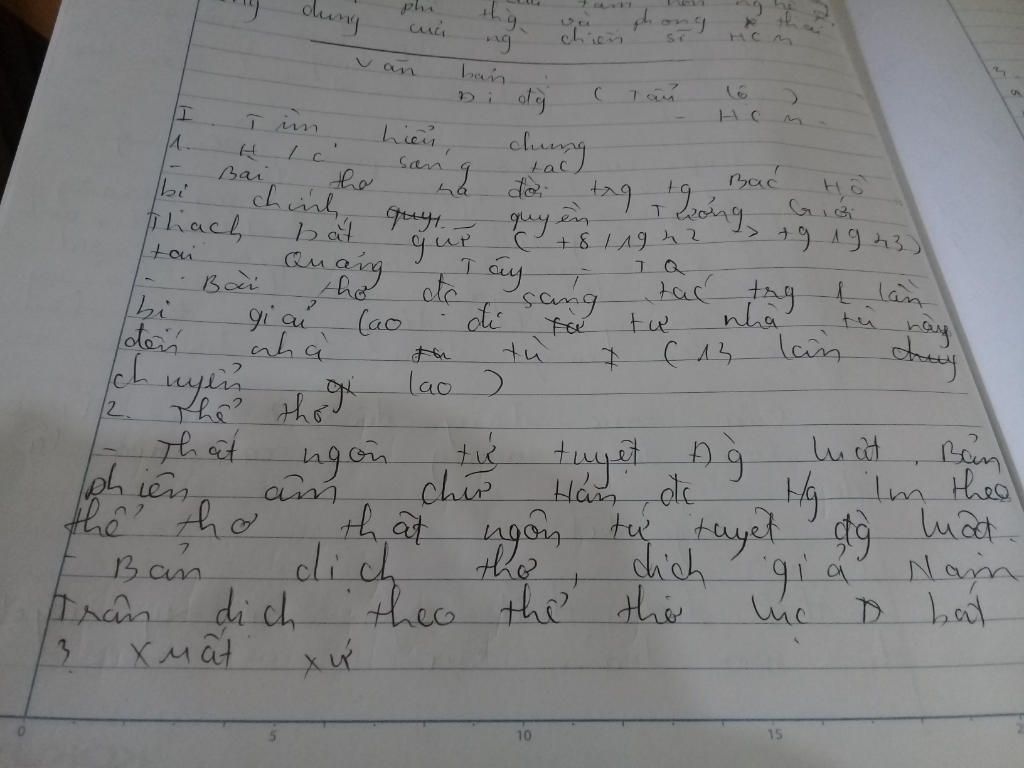 phi thg và phong thái
dung của ng chiến sĩ HCM
Văn bản
Đi đg ( Tẩu lộ )
- HCM -
I. Tìm hiểu chung
1. H/c sáng tác
- Bài thơ ra đời trg tg Bác Hồ
bị chính quyền Tưởng Giới
Thạch bắt giữ ( t8/1942 > t9 1943)
tại Quảng Tây - TQ
- Bài thơ đc sáng tác trg 1 lần
bị giải lao đi từ nhà tù này
đến nhà tù ≠ ( 13 lần
chuyển lao )
2. Thể thơ
- Thất ngôn tứ tuyệt Đg luật. Bản
phiên âm chữ Hán đc theo
thể thơ thất ngôn tứ tuyệt đg luật.
- Bản dịch thơ, dịch giả Nam
Trân dịch theo thể thơ lục bát
3. Xuất xứ
0 5 10 15